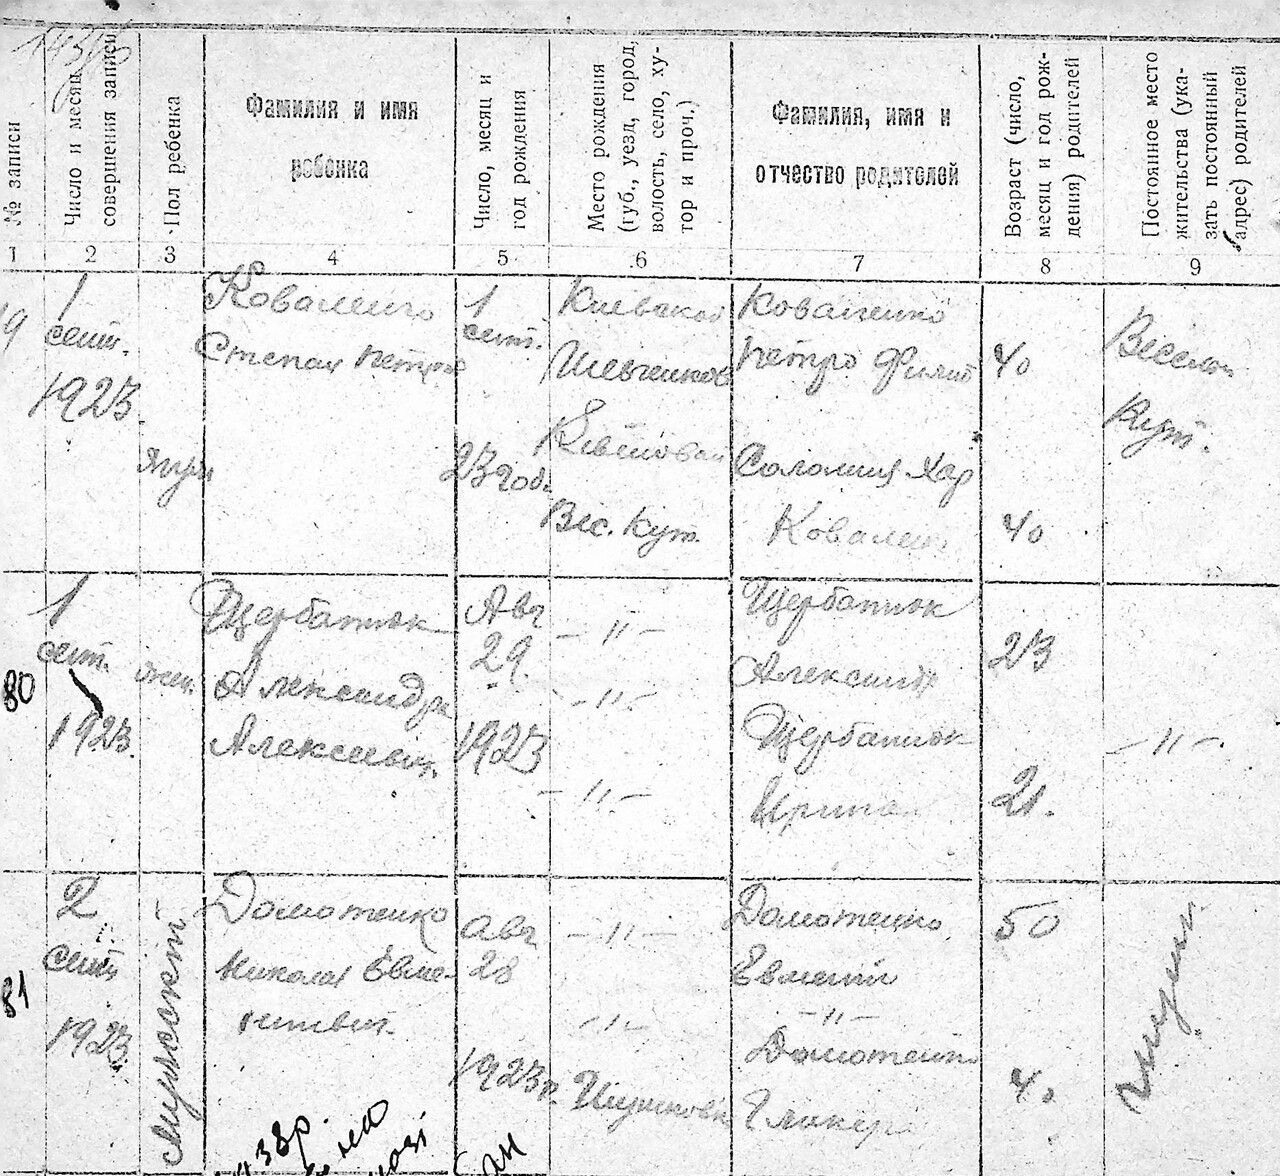 № записи
Число и месяц совершения записи
Пол ребенка
Фамилия и имя
ребенка
Число, месяц и
год рождения
Место рождения
(губ., уезд, город,
волость, село, ху-
тор и проч.)
Фамилия, имя и
отчество родителей
Возраст (число,
месяц и год рож-
дения) родителей
Постоянное место
жительства (ука-
зать постоянный
адрес) родителей
1 2 3 4 5 6 7 8 9
1
сент.
1923
Коваленко
Степан Петров
1
сент.
23 года
Киевской
Шевченков
Вес. Кут.
Коваленко
Петро Филип
Соломия Хар
Ковален
40
40
Веселый
Кут.
80
1
сент.
1923
жен.
Щербатюк
Александра
Алексеевн.
Авг
29
1923
-"-
-"-
-"-
Щербатюк
Алексий
Щербатюк
Ирина
23
21.
-"-
81
2
сент
1923
Мужской
Домотенко
Николай Евме-
ниевич.
Авг
28
1923 г.
-"-
-"-
Домотенко
Евмений
-"-
Домотенко
Гликер
50
40